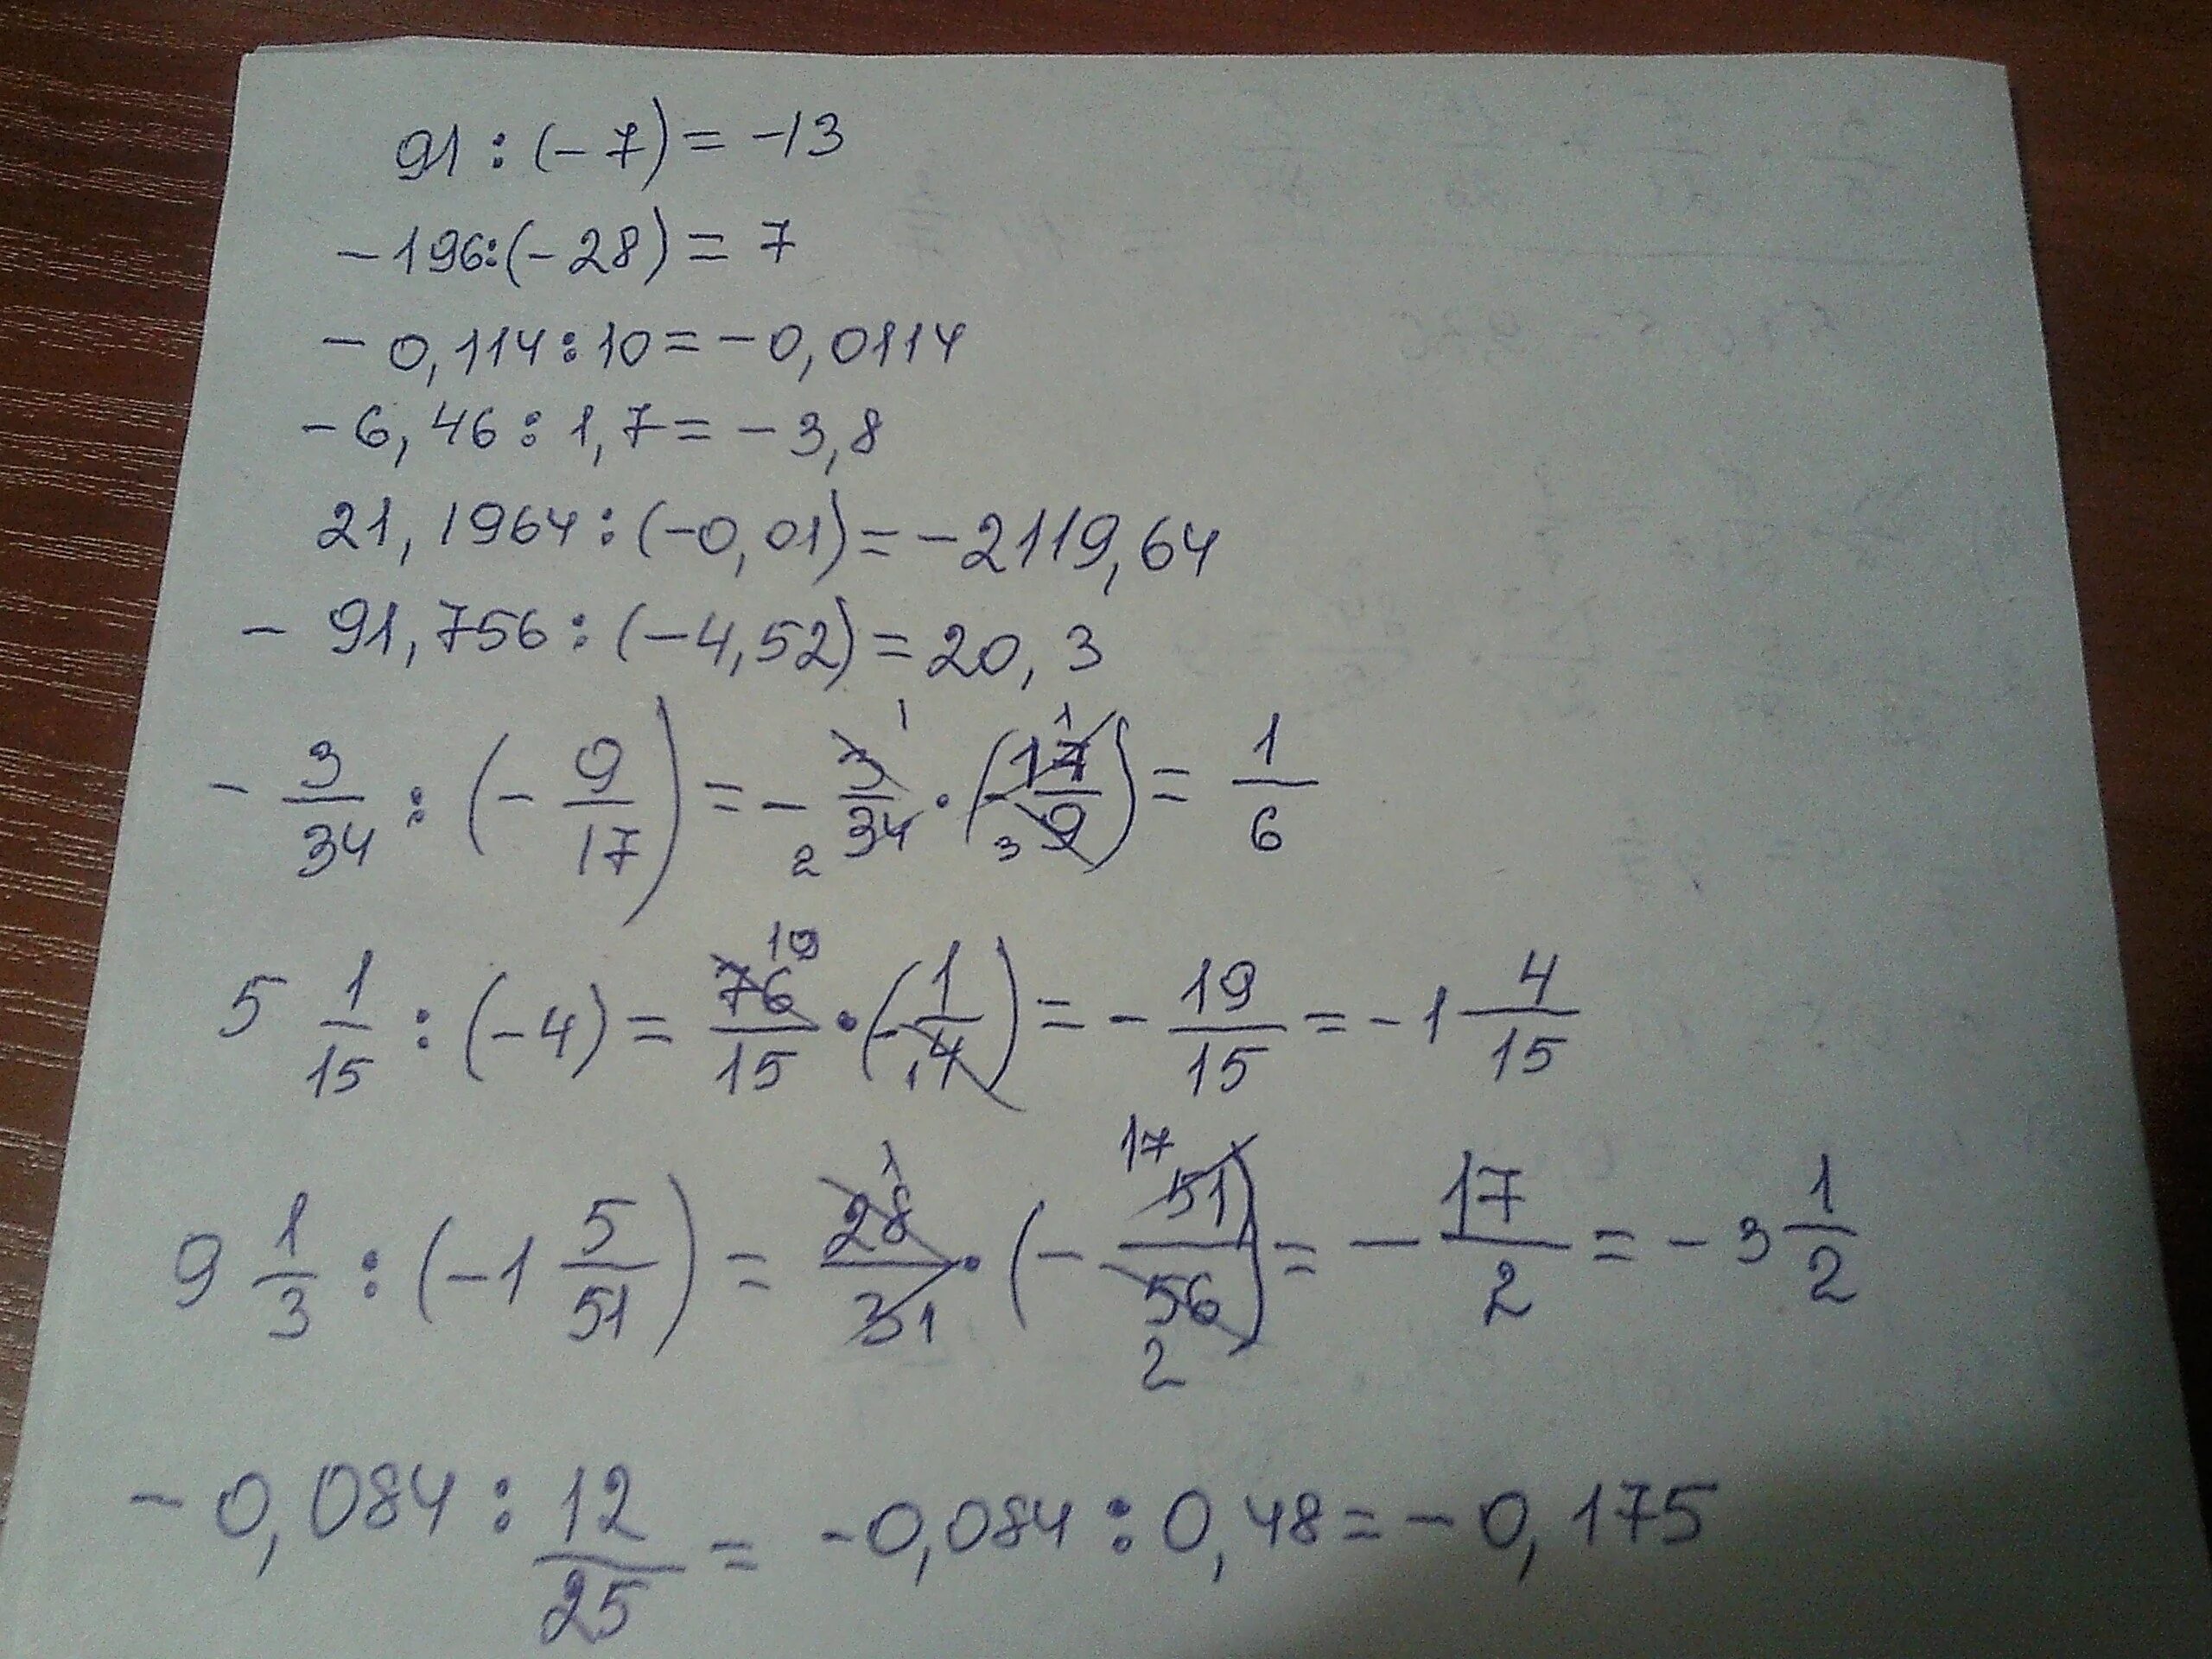 91 : (-7) = -13
-196:(-28) = 7
-0,114:10 = -0,0114
-6,46 : 1,7 = -3,8
21,1964 : (-0,01) = -2119,64
-91,756 : (-4,52) = 20,3
-3/34 : (-9/17) = -3/34 · (-17/9) = 1/6
5 1/15 : (-4) = 76/15 · (-1/4) = -19/15 = -1 4/15
9 1/3 : (-1 5/51) = 28/3 · (-51/56) = -17/2 = -3 1/2
-0,084 : 12/25 = -0,084 : 0,48 = -0,175